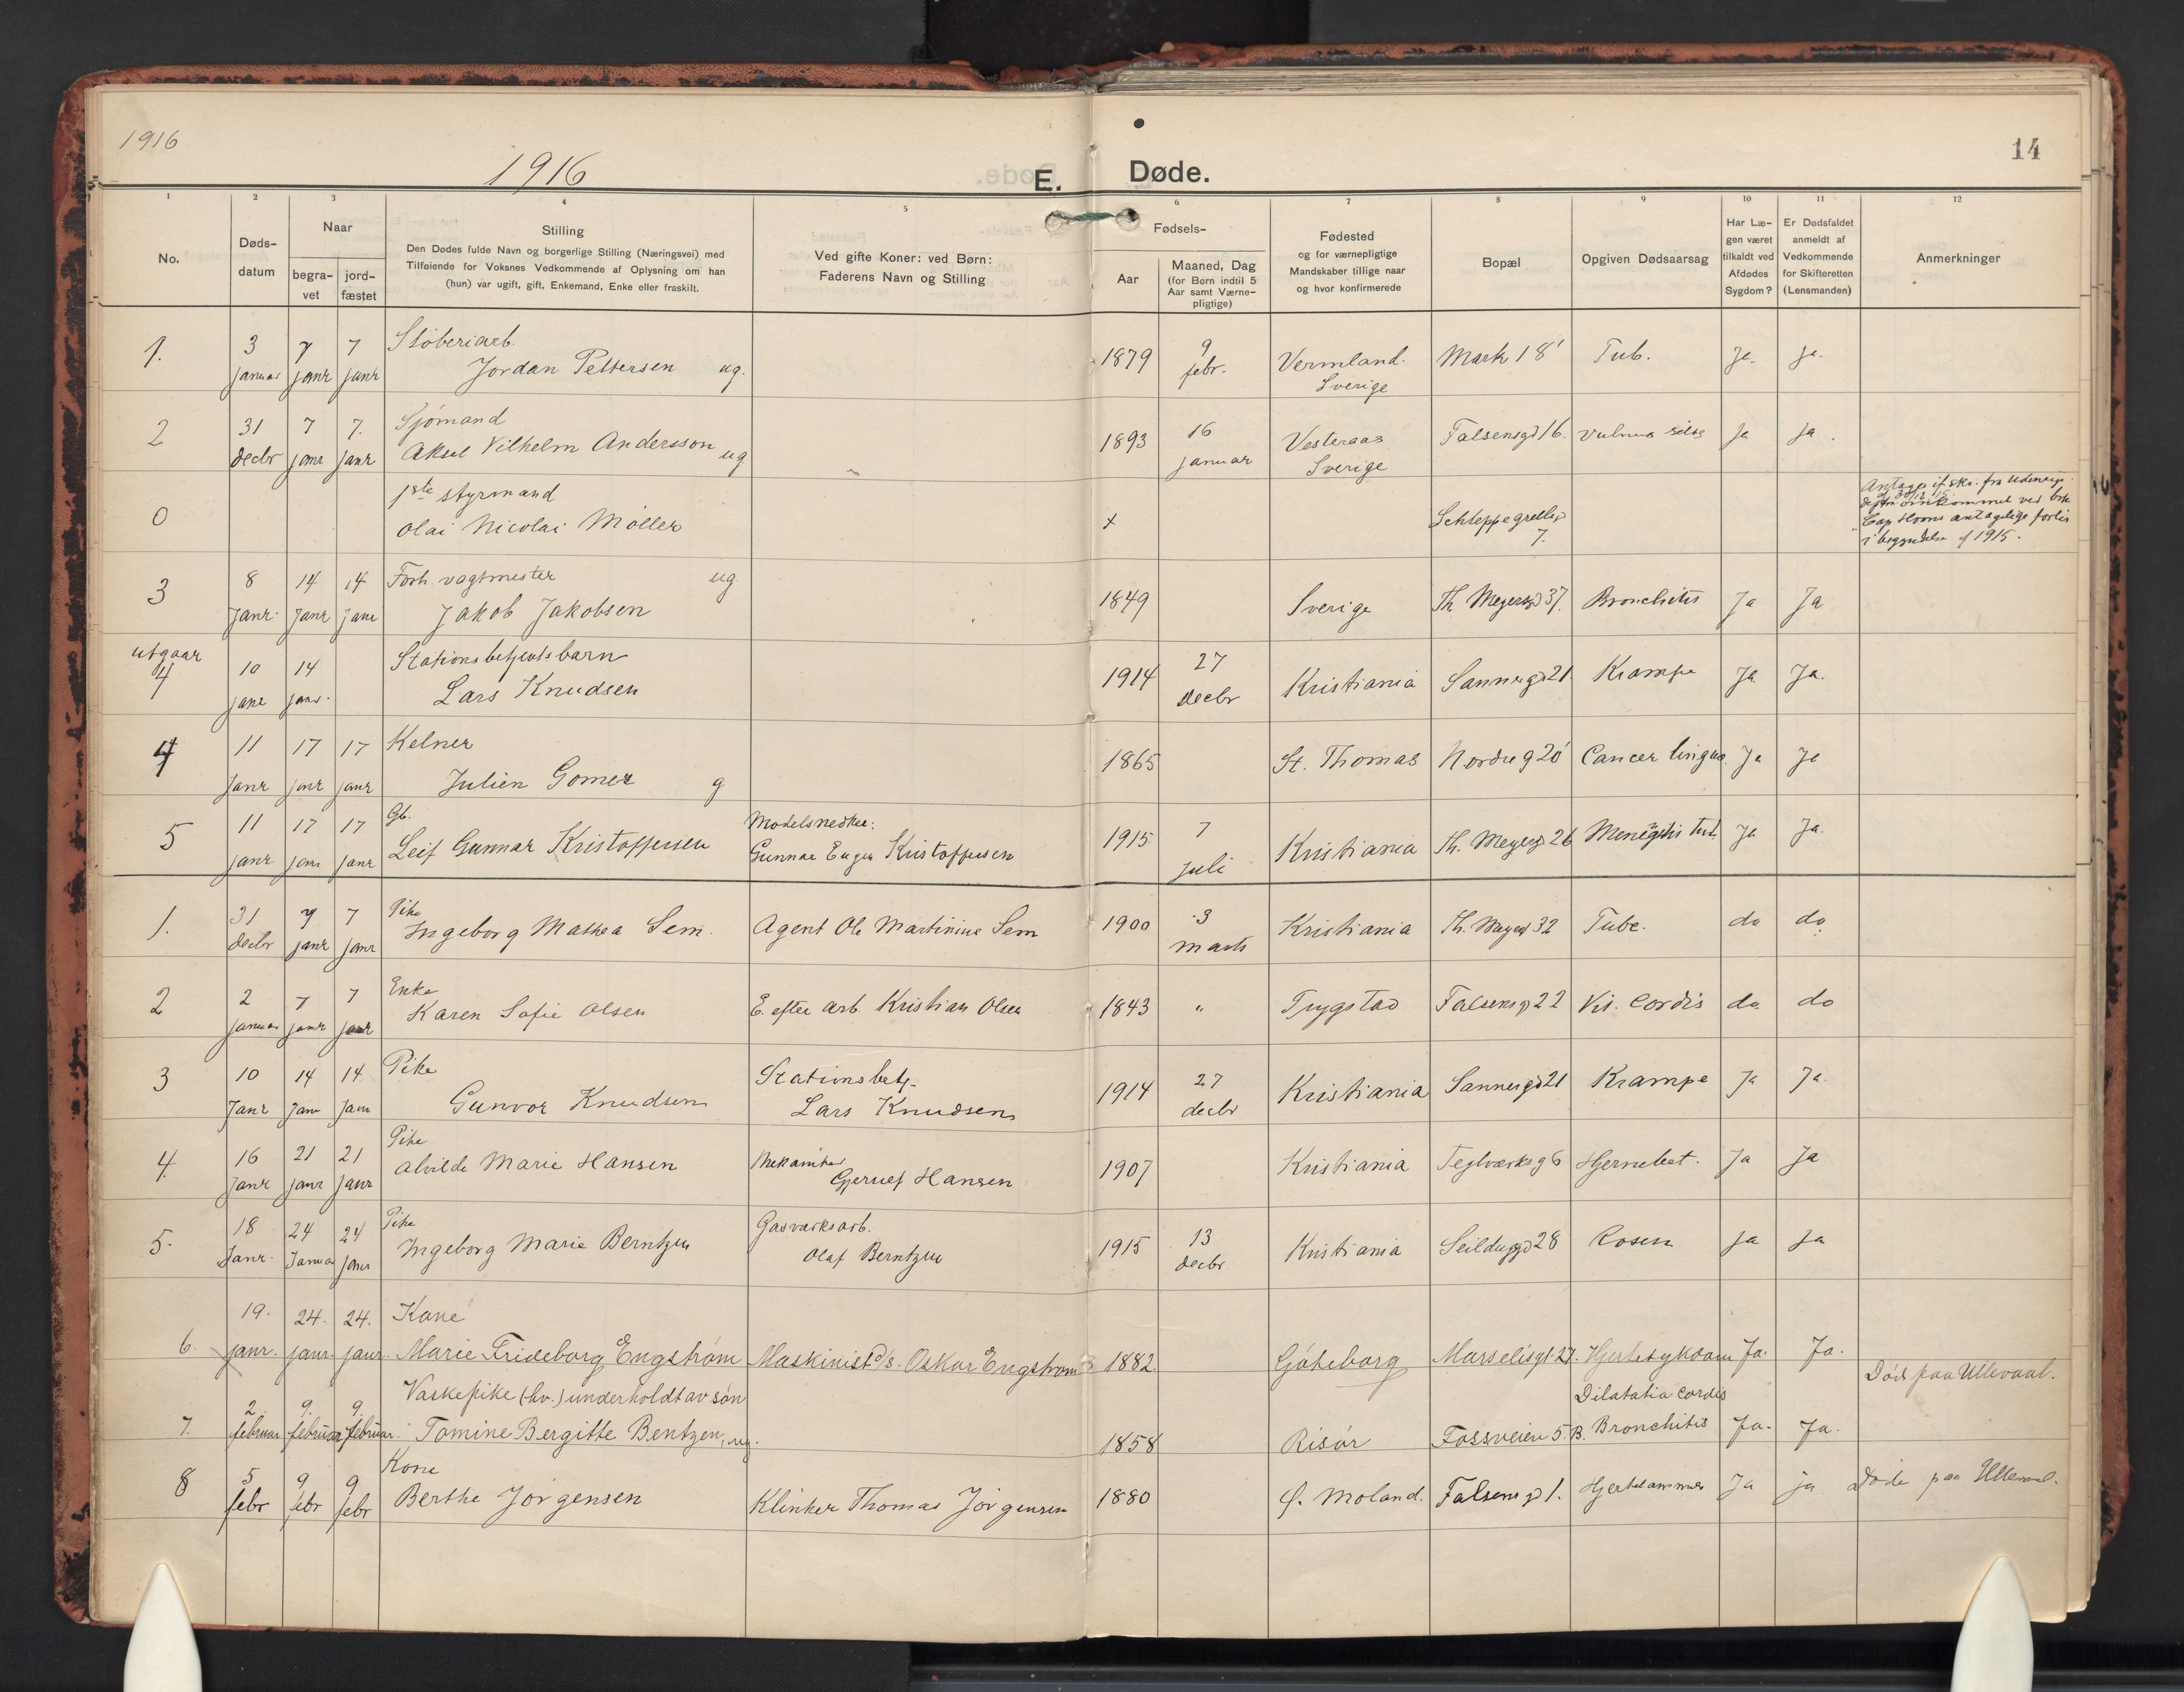 1916
1916
E. Døde.
14
1 2 3 4 5 6 7 8 9 10 11 12
No.
Døds-
datum
Naar
begra-
vet
jord-
fæstet
Stilling
Den Dødes fulde Navn og borgerlige Stilling (Næringsvei) med
Tilføiende for Voksnes Vedkommende af Oplysning om han
(hun) var ugift, gift, Enkemand, Enke eller fraskilt.
Ved gifte Koner: ved Børn:
Faderens Navn og Stilling
Fødsels-
Aar
Maaned, Dag
(for Børn indtil 5
Aar samt Værne-
pligtige)
Fødested
og for værnepligtige
Mandskaber tillige naar
og hvor konfirmerede
Bopæl
Opgiven Dødsaarsag
Har Læ-
gen været
tilkaldt ved
Afdødes
Sygdom?
Er Dødsfaldet
anmeldt af
Vedkommende
for Skifteretten
(Lensmanden)
Anmerkninger
1. 3 7 7 Støberiarb. 1879 9 Vermland. Mark 18' Tub. Ja ja.
januar janr janr Jordan Pettersen ug. febr. Sverige
2 31 7 7. Sjømand 1893 16 Vesteraas Falsensgd 16. Vulnus Ja ja.
decbr janr janr Aksel Vilhelm Andersson ug januar Sverige
0 1ste styrmand x Schleppegrellsg
Olai Nicolai Møller 7.
i begyndelse af 1915.
3 8 14 14 Forh. vagtmester ug 1849 Sverige Th. Meyersgd 37. Bronchitis Ja Ja
Janr. Janr Janr Jakob Jakobsen
utgaar
4 10 14 Stationsbetjentsbarn 1914 27 Kristiania Sannergd 21 Krampe Ja Ja.
janr janr. Lars Knudsen decbr
4 11 17 17 Kelner 1865 St. Thomas Nordreg 20 Cancer lingua Ja Ja
Janr janr janr Julien Gomez g
5 11 17 17 Gb. Modelsnedker: 1915 7 Kristiania Th. Meyersg 26 Ja Ja.
janr janr janr Leif Gunnar Kristoffersen Gunnar Eugen Kristoffersen juli
1. 31 7 7 Pike 1900 3 Kristiania Th. Meyersg 32 Tube. do do
decbr janr janr Ingeborg Mathea Sem. Agent Ole Martinius Sem marts
2 2 7 7 Enke 1843 " Trygstad Falsensg 22 Vit. Cordis do do
januar janr janr Karen Sofie Olsen E. efter arb. Kristian Olsen
3 10 14 14 Pike Stationsbetj. 1914 27 Kristiania Sannergd 21 Krampe Ja Ja.
Janr Janr Janr Gunvor Knudsen Lars Knudsen decbr
4. 16 21 21 Pike 1907 Kristiania Teglverksg 6 Hjernebet. Ja Ja
Janr janr janr Alvilde Marie Hansen Mekaniker Hansen
5. 18 24 24 Pike Gasværksarb. 1915 13 Kristiania Seildugsgd 28 Rosen Ja Ja
Janr. Januar janr Ingeborg Marie Berntzen Olaf Berntzen decbr
6. 19. 24. 24. Kone
janr. janr. janr. Marie Frideborg Engstrøm Maskinist d/s. Oskar Engstrøm 1882. Gøteborg Marselisgt. 27. Hjertesykdom Ja. Ja. Død paa Ullevaal.
7. 2. 9. 9. Vaskepike (hv.) underholdt av søn Dilatatia cordis
februar februar februar Tomine Bergitte Bentzen, ug. 1858 Risør Fossveien 5. B. Bronchitis Ja. Ja.
8 5 9 9 Kone
febr febr febr Berthe Jørgensen Klinker Thomas Jørgensen 1880 Ø. Moland. Falsensg 1. Ja ja Døde paa Ullevaal.